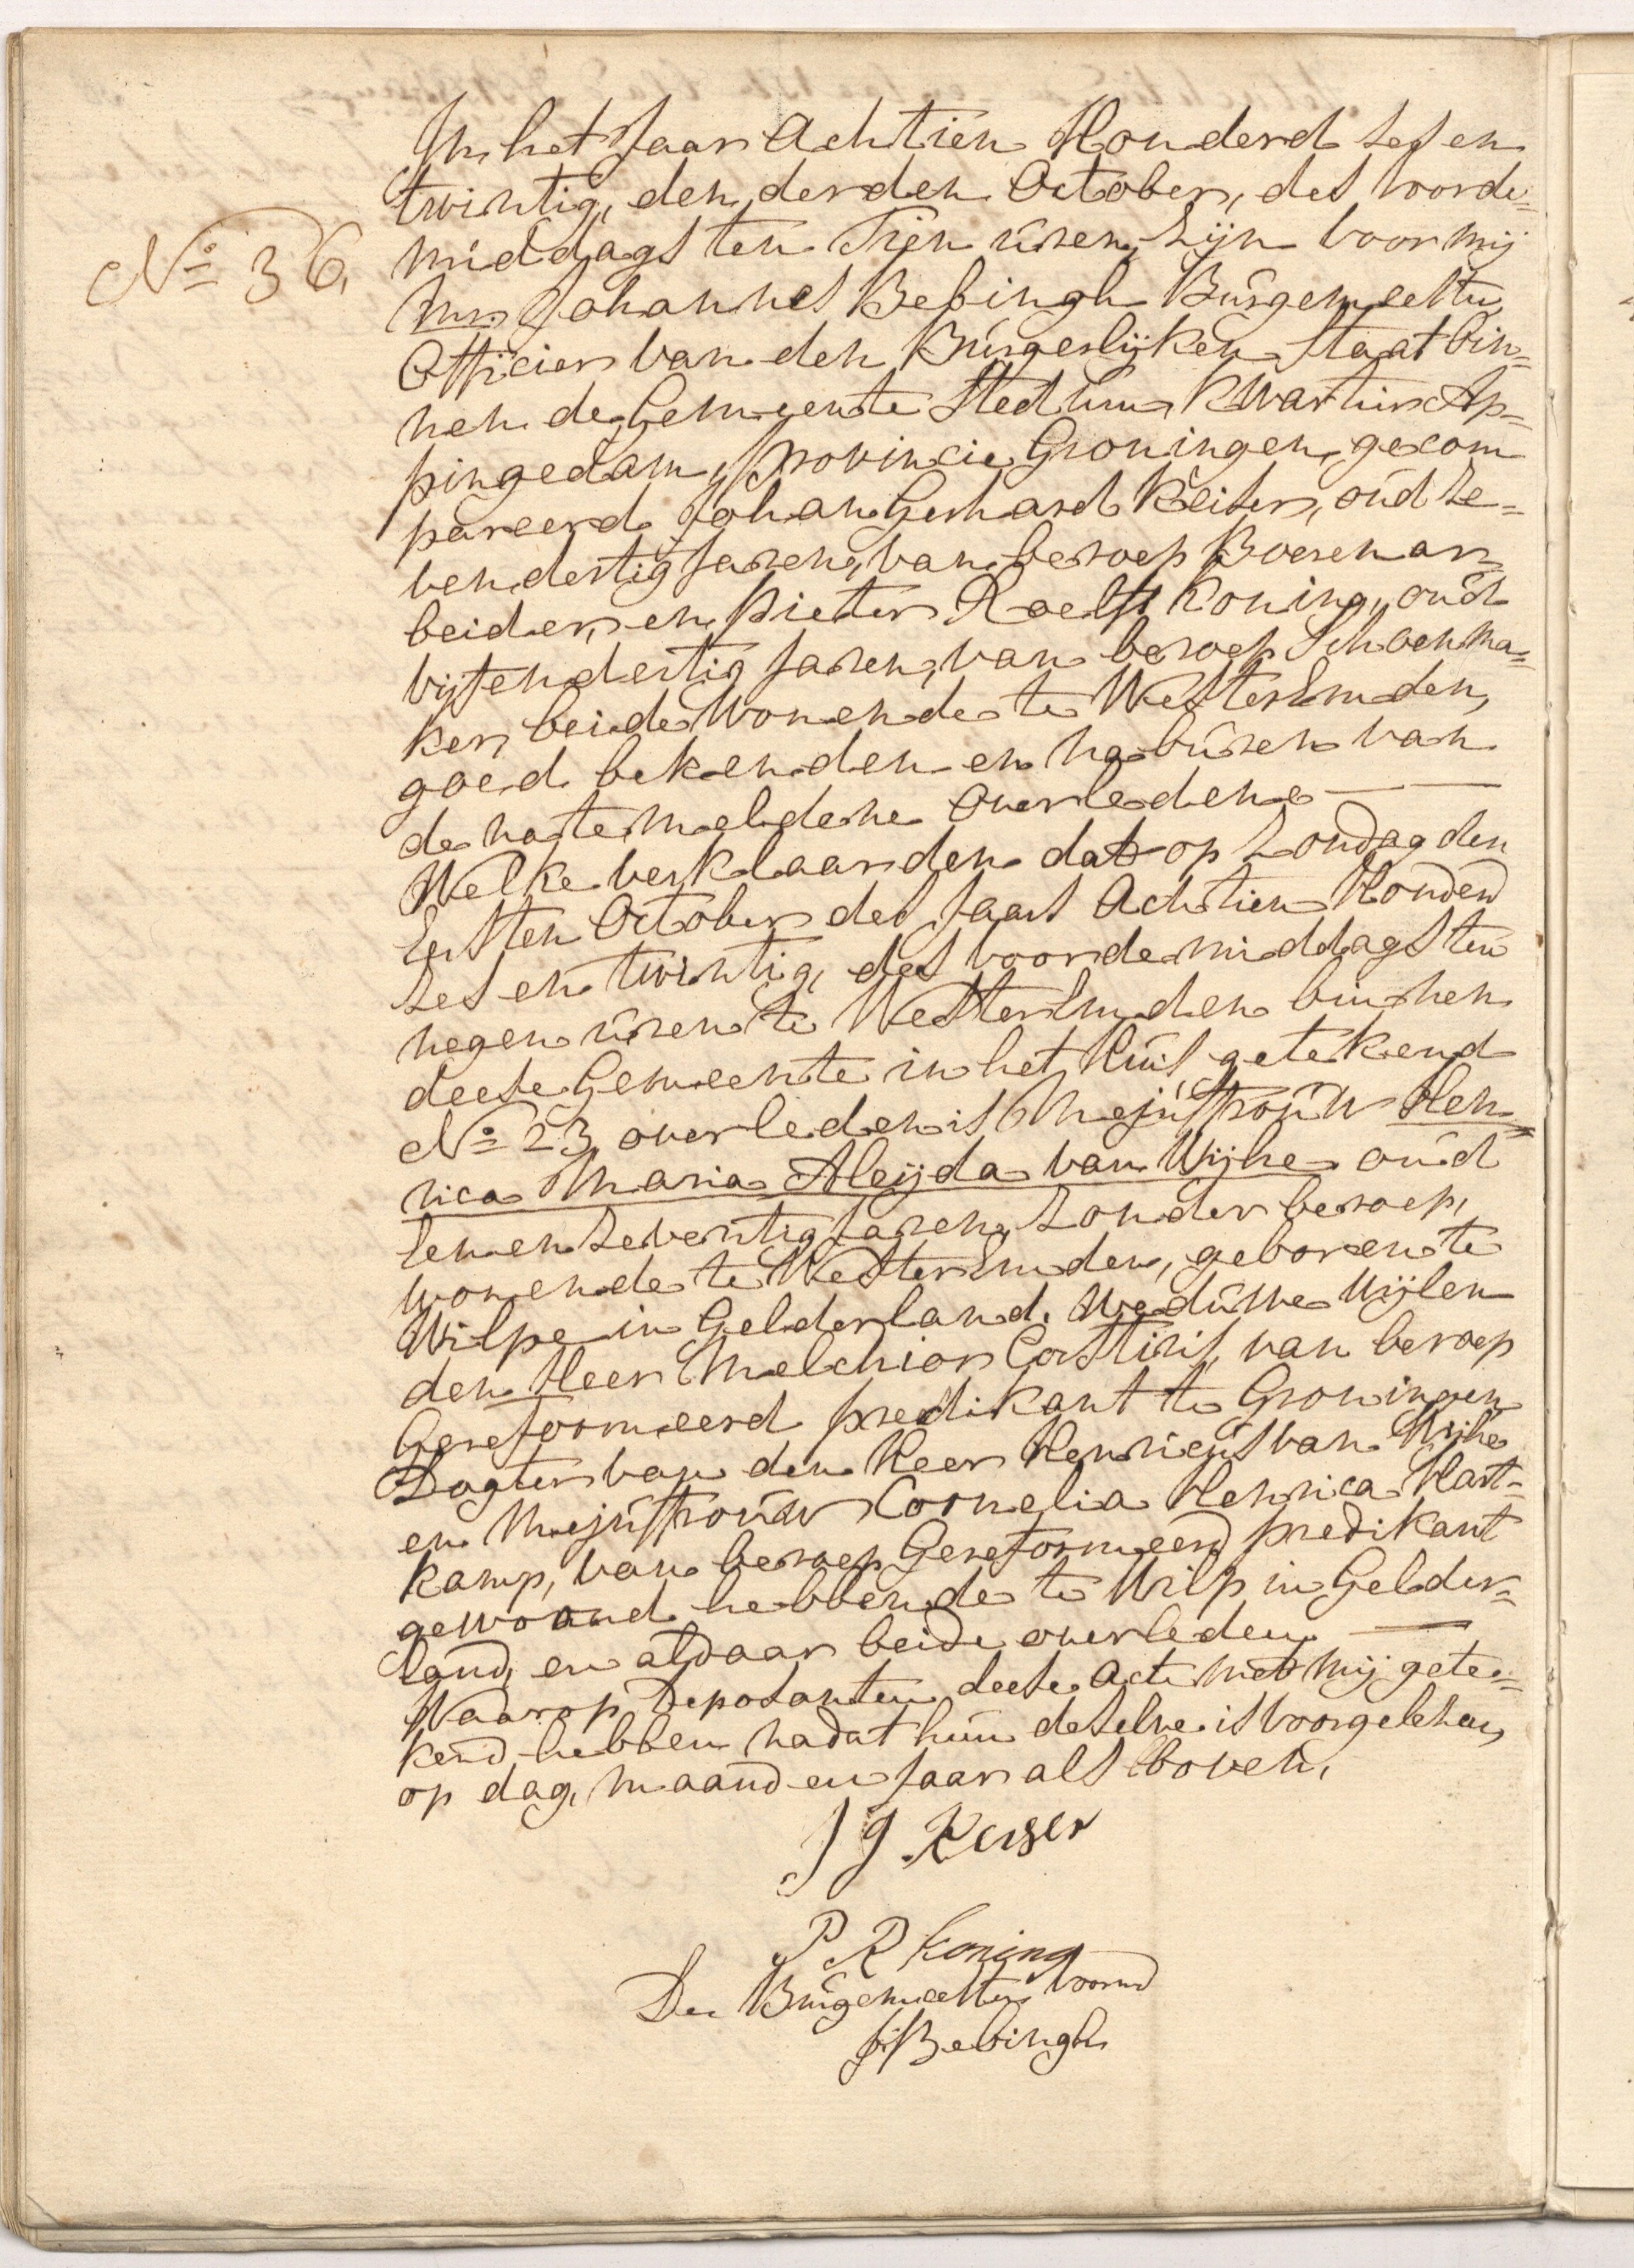 In het Jaar Achtien Honderd ses en
twintig, den derden October, des voorde-
middags ten Tien uren, zijn voor mij
No 36.
Mr. Johannes Bebingh Burgemeester
Officier van den Burgerlijken Staat bin-
nen de Gemeente Stedum Kwartier Ap-
pingedam, Provincie Groningen, gecom
pareerd Johan Gerhard Keiser, oud ze-
vendertig Jaren, van beroep Boeren ar-
beider, en Pieter Roelfs Koning, oud
vijfendertig Jaren, van beroep Schoenma-
ker, beide wonende te WesterEmden,
goed bekenden en naburen van
de natemeldene Overledene
Welke verklaarden dat op Zondag den
Eersten October des Jaars Achtien Honderd
ses en twintig, des voordemiddags ten
negen uren te WesterEmden binnen
deese Gemeente in het Huis getekend
No 23 overleden is Mejuffrouw Hen-
rica Maria Aleijda van Wijhe oud
Een en zeventig Jaren, zonder beroep,
wonende te WesterEmden, geboren te
Wilpe in Gelderland. Weduwe Wijlen
den Heer Melchior Corstius, van beroep
Gereformeerd predikant te Groningen
Dogter van den Heer Henricus van Wijhe
en Mejuffrouw Cornelia Henrica Hart-
kamp, van beroep Gereformeerd predikant
gewoond hebbende te Wilp in Gelder-
land, en aldaar beide overleden.
Waarop Deposanten deese Acte met mij gete-
kend hebben nadat hun deselve is voorgelesen,
op dag, maand en Jaar als boven,
J G Keiser
P R Koning
De Burgemeester voornd
J Bebingh